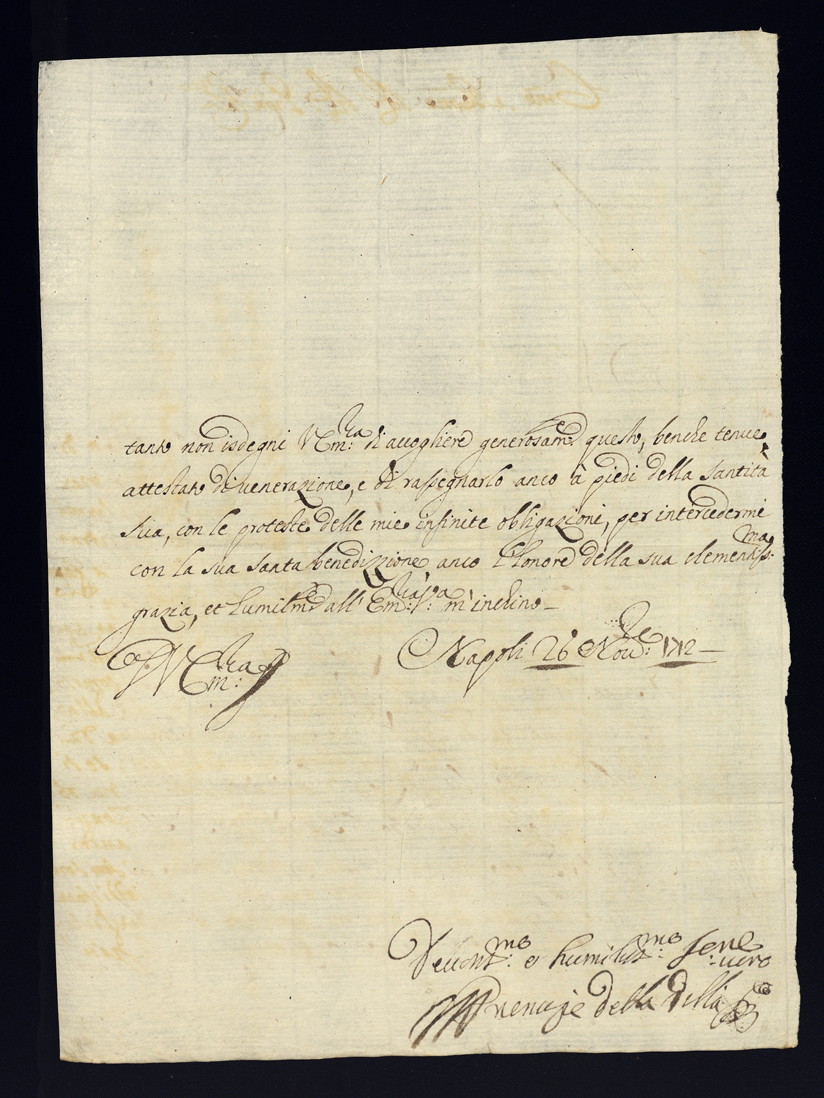 tanto non isdegni V Em:za di accogliere generosam:e questo, benche tenue,
attestato di venerazione, e di rassegnarlo anco à piedi della Santità
Sua, con le proteste delle mie infinite obligazioni, per intercedermi
con la sua Santa benedizzione anco l'honore della sua clementiss:ma
grazia, et humilm:e all' Em:za V:a m'inchino_
V Em:za
Napoli 26 Nov:re 1712_
Devot:mo et humiliss:mo Ser:re vero
Prencipe della